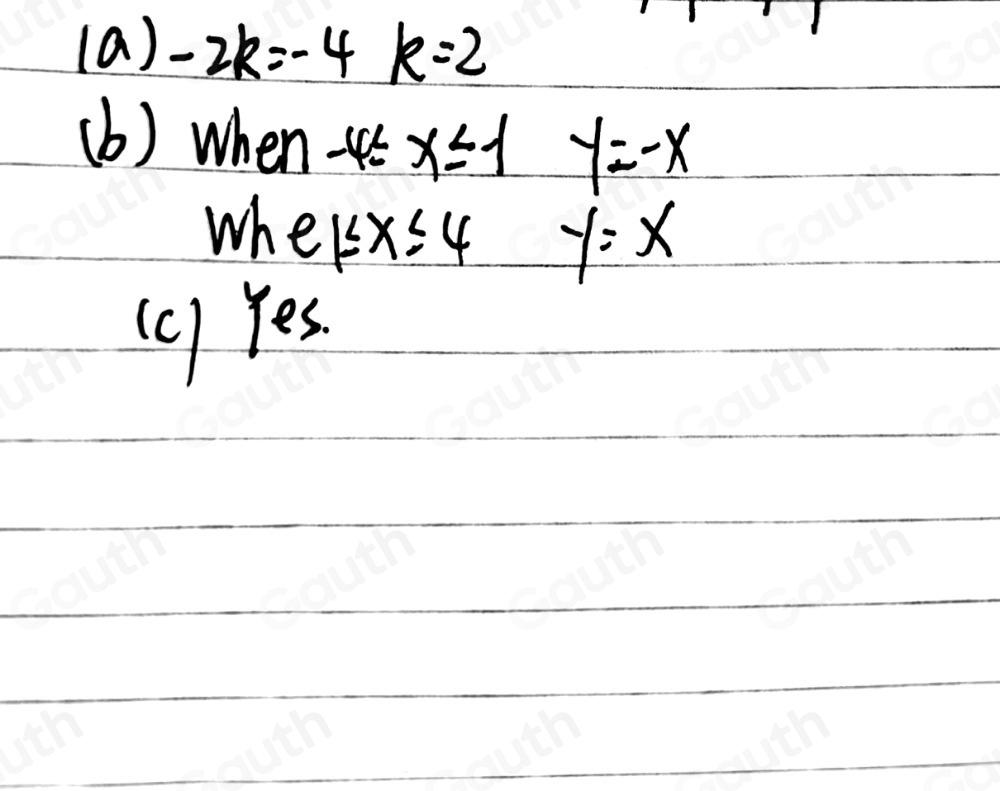 (a) -2k=-4 k=2
(b) When -4≤ x≤-1 y=-x
Whe 1≤x≤4 y=x
(c) Yes.